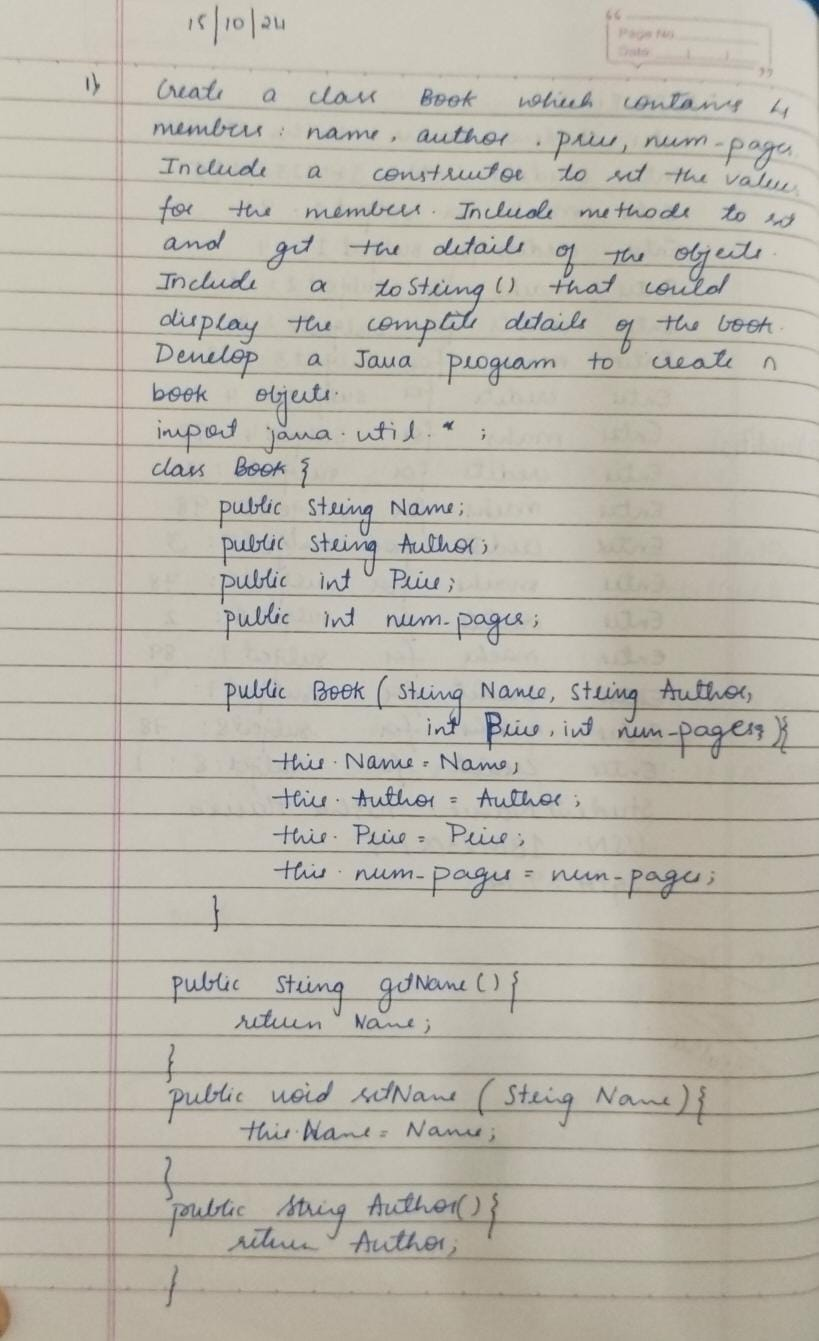 15/10/24
Page No
Date
1) Create a class Book which contains 4
members: name, author, price, num-pages
Include a constructor to set the values
for the members. Include methods to set
and get the details of the objects.
Include a toString() that could
display the complete details of the book.
Develop a Java program to create n
book objects.
import java.util.*;
class Book {
public String Name;
public String Author;
public int Price;
public int num-pages;
public Book (String Name, String Author,
int Price, int num-pages){
this.Name = Name;
this.Author = Author;
this.Price = Price;
this.num-pages = num-pages;
}
public String getName(){
return Name;
}
public void setName (String Name){
this.Name = Name;
}
public String Author(){
return Author;
}